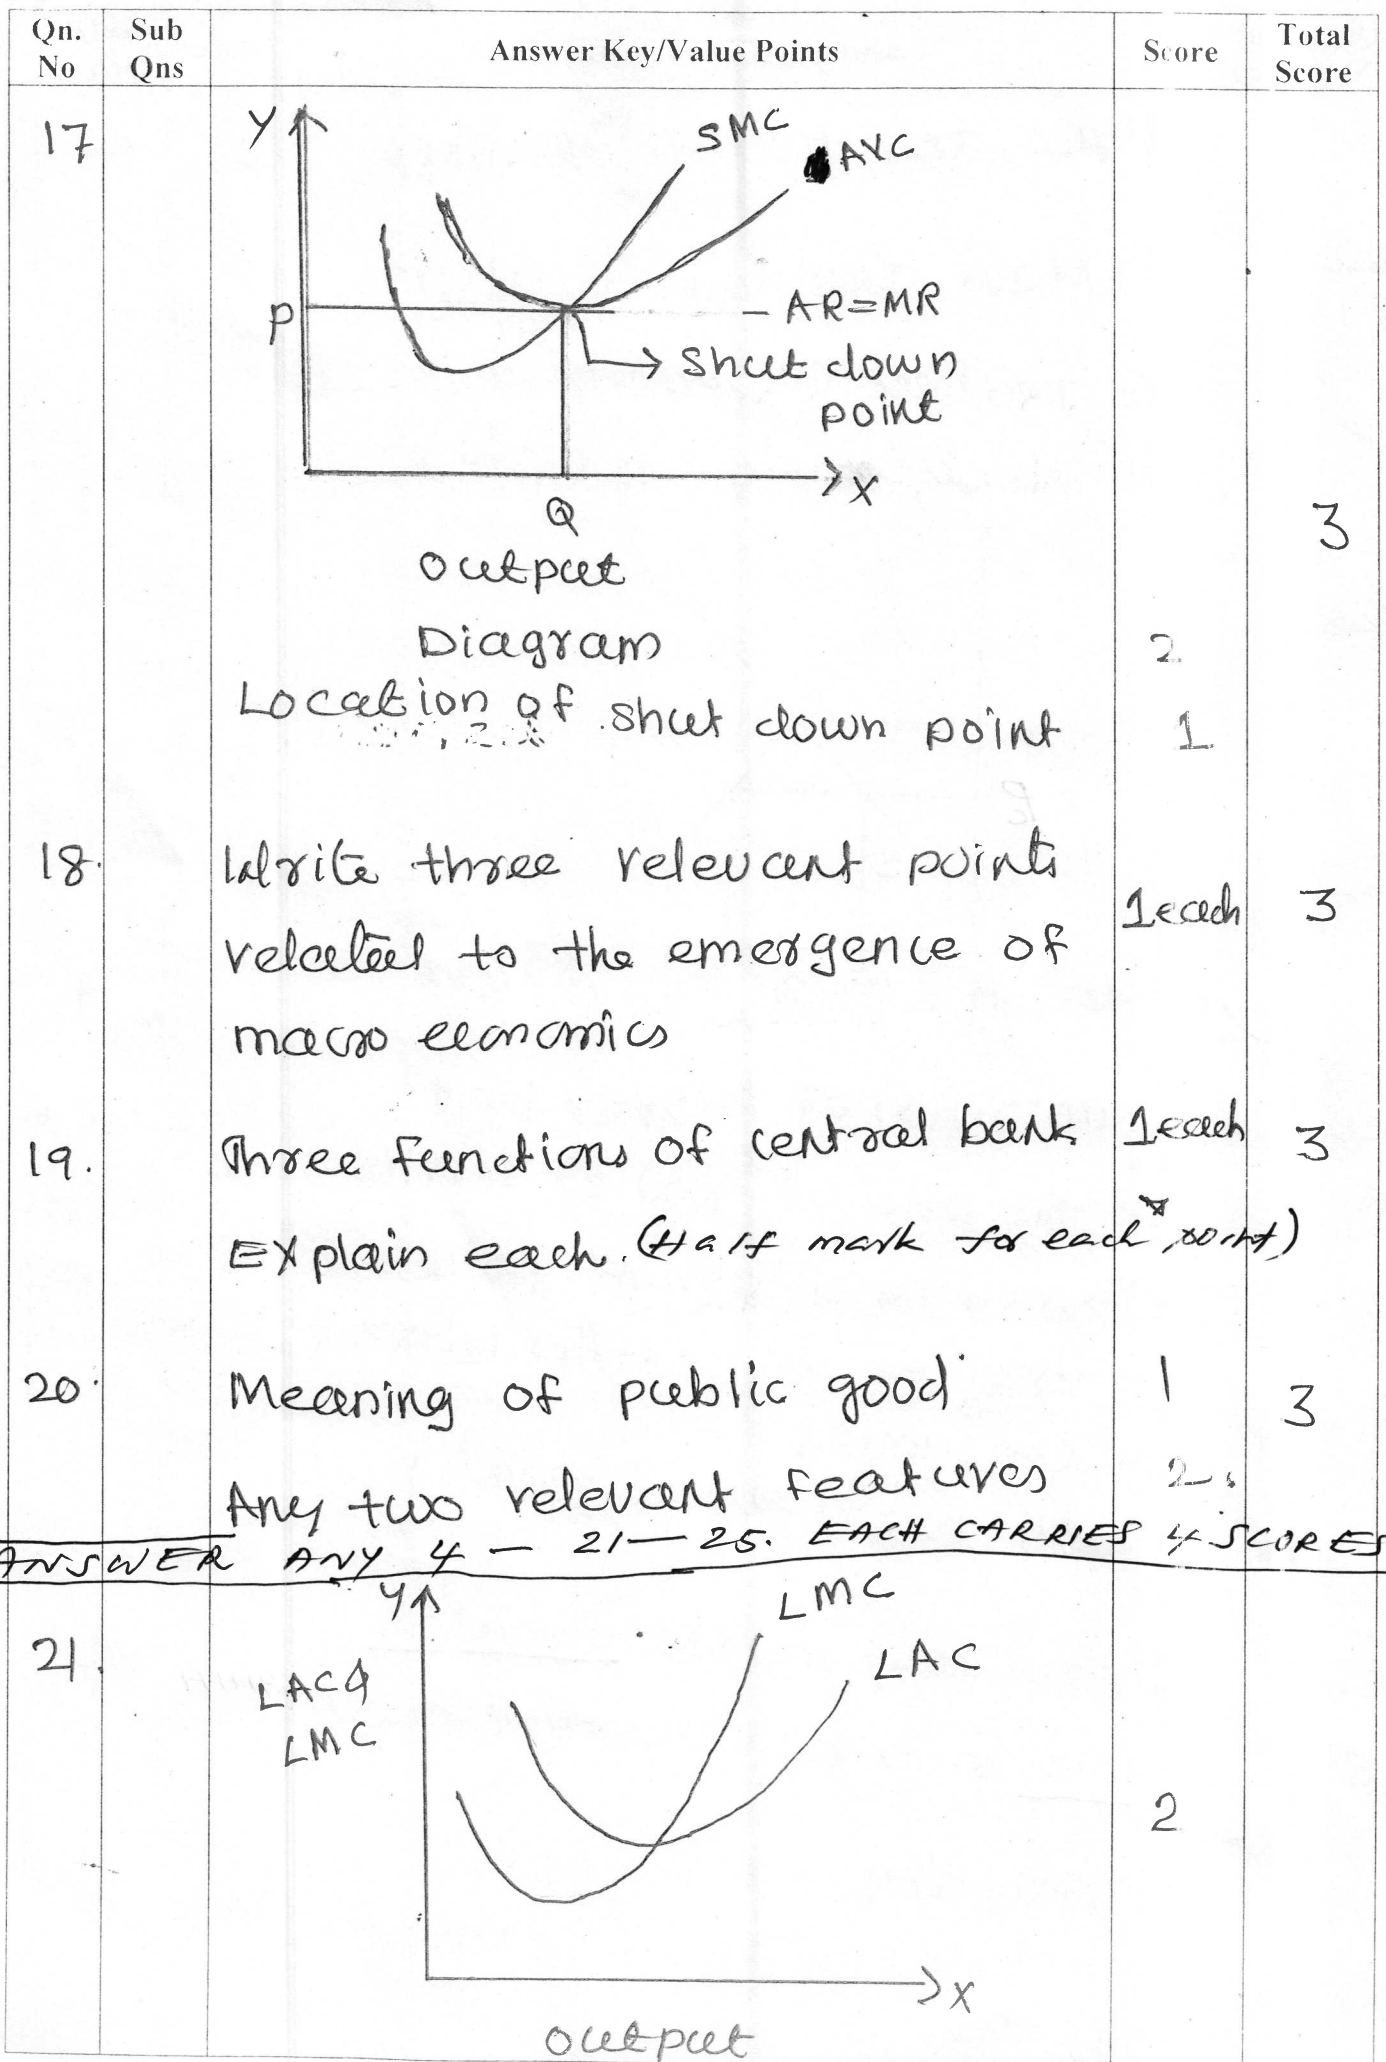 Qn. No Sub Qns Answer Key/Value Points Score Total Score
17
Y
SMC
AVC
P
- AR=MR
Shut down
point
X
Q
3
output
Diagram 2
Location of shut down point 1
18. Write three relevant points
1 each 3
related to the emergence of
macro economics
19. Three functions of central bank 1 each 3
Explain each. (Half mark for each point)
20. Meaning of public good 1 3
Any two relevant features 2.
ANSWER ANY 4 — 21—25. EACH CARRIES 4 SCORES
Y
LMC
21.
LAC
LAC &
LMC
2
X
output